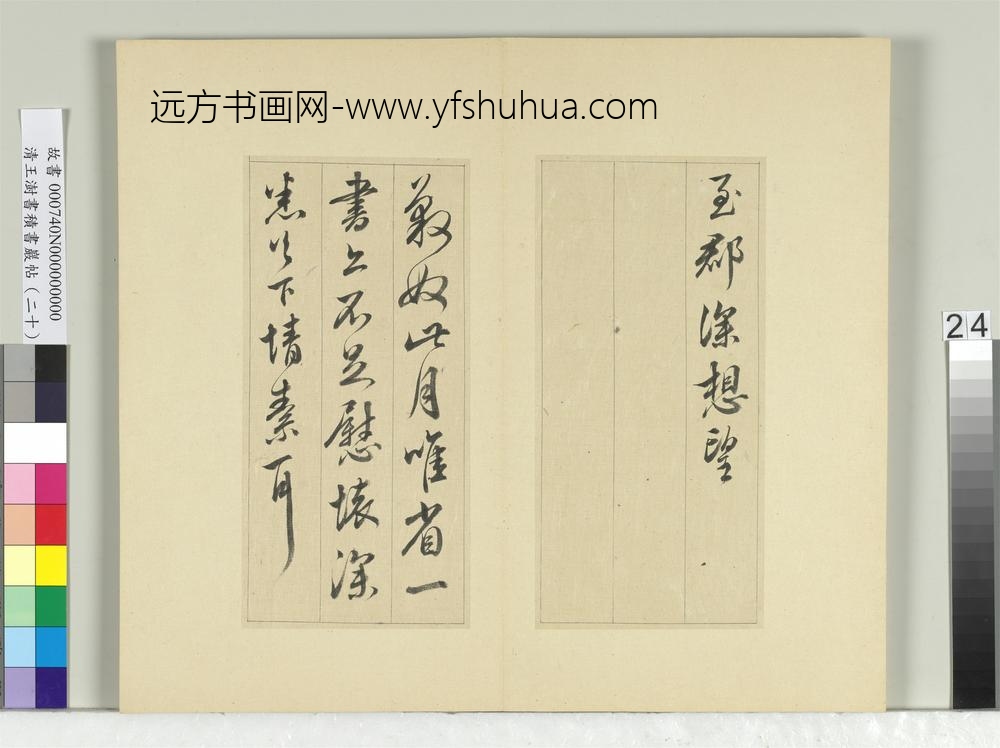 远方书画网-www.yfshuhua.com
至郡深想望
敬奴此月唯省一
書亦不足慰懷深
悉以下情素耳
故書 000740N000000000
清王澍書積書巖帖（二十）
24